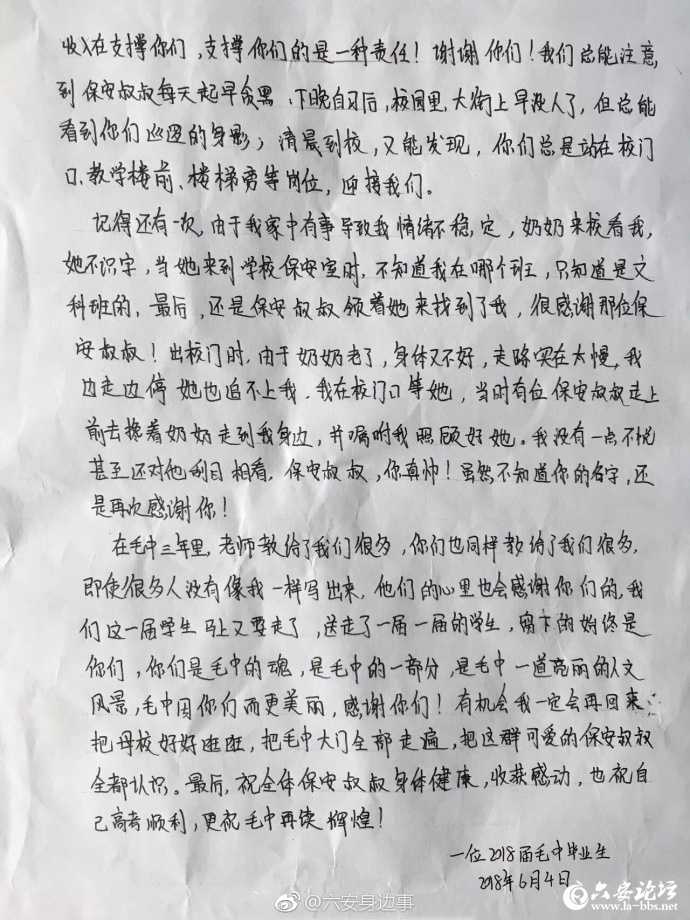 收入在支撑你们，支撑你们的是一种责任！谢谢你们！我们总能注意
到保安叔叔每天起早贪黑，下晚自习后，校园里，大街上早没人了，但总能
看到你们巡逻的身影；清晨到校，又能发现，你们总是站在校门
口、教学楼前、楼梯旁等岗位，迎接我们。
记得还有一次，由于我家中有事导致我情绪不稳定，奶奶来校看我，
她不识字，当她来到学校保安室时，不知道我在哪个班，只知道是文
科班的，最后，还是保安叔叔领着她来找到了我，很感谢那位保
安叔叔！出校门时，由于奶奶老了，身体又不好，走路实在太慢，我
边走边停她也追不上我，我在校门口等她，当时有位保安叔叔走上
前去搀着奶奶走到我身边，并嘱咐我照顾好她。我没有一点不悦
甚至还对他刮目相看，保安叔叔，你真帅！虽然不知道你的名字，还
是再次感谢你！
在毛中三年里，老师教给了我们很多，你们也同样教给了我们很多，
即使很多人没有像我一样写出来，他们的心里也会感谢你们的，我
们这一届学生马上又要走了，送走了一届一届的学生，留下的始终是
你们，你们是毛中的魂，是毛中的一部分，是毛中一道亮丽的人文
风景，毛中因你们而更美丽，感谢你们！有机会我一定会再回来
把母校好好逛逛，把毛中大门全部走遍，把这群可爱的保安叔叔
全都认识。最后，祝全体保安叔叔身体健康，收获感动，也祝自
己高考顺利，更祝毛中再续辉煌！
一位2018届毛中毕业生
2018年6月4日
@六安身边事
六安论坛
www.la-bbs.net